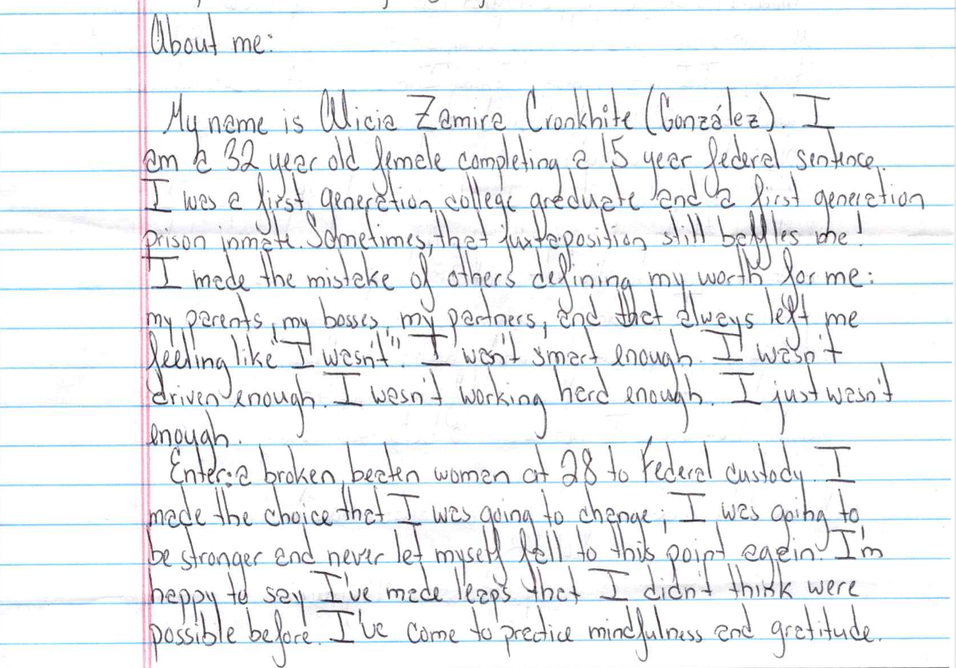 About me:
My name is Alicia Zamira Cronkhite (González). I
am a 32 year old female completing a 15 year federal sentence.
I was a first generation college graduate and a first generation
prison inmate. Sometimes, that juxtaposition still baffles me!
I made the mistake of others defining my worth for me:
my parents, my bosses, my partners, and that always left me
feeling like "I wasn't". I wasn't smart enough. I wasn't
driven enough. I wasn't working hard enough. I just wasn't
enough.
Enter: a broken, beaten woman at 28 to Federal custody. I
made the choice that I was going to change; I was going to
be stronger and never let myself fall to this point again. I'm
happy to say I've made leaps that I didn't think were
possible before. I've come to practice mindfulness and gratitude.